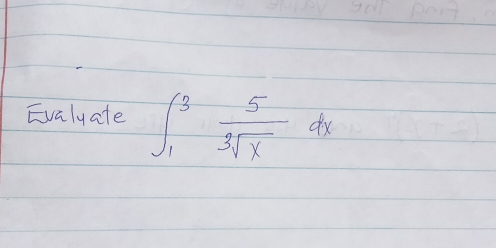 Evaluate ∫₁³ 5/∛x dx